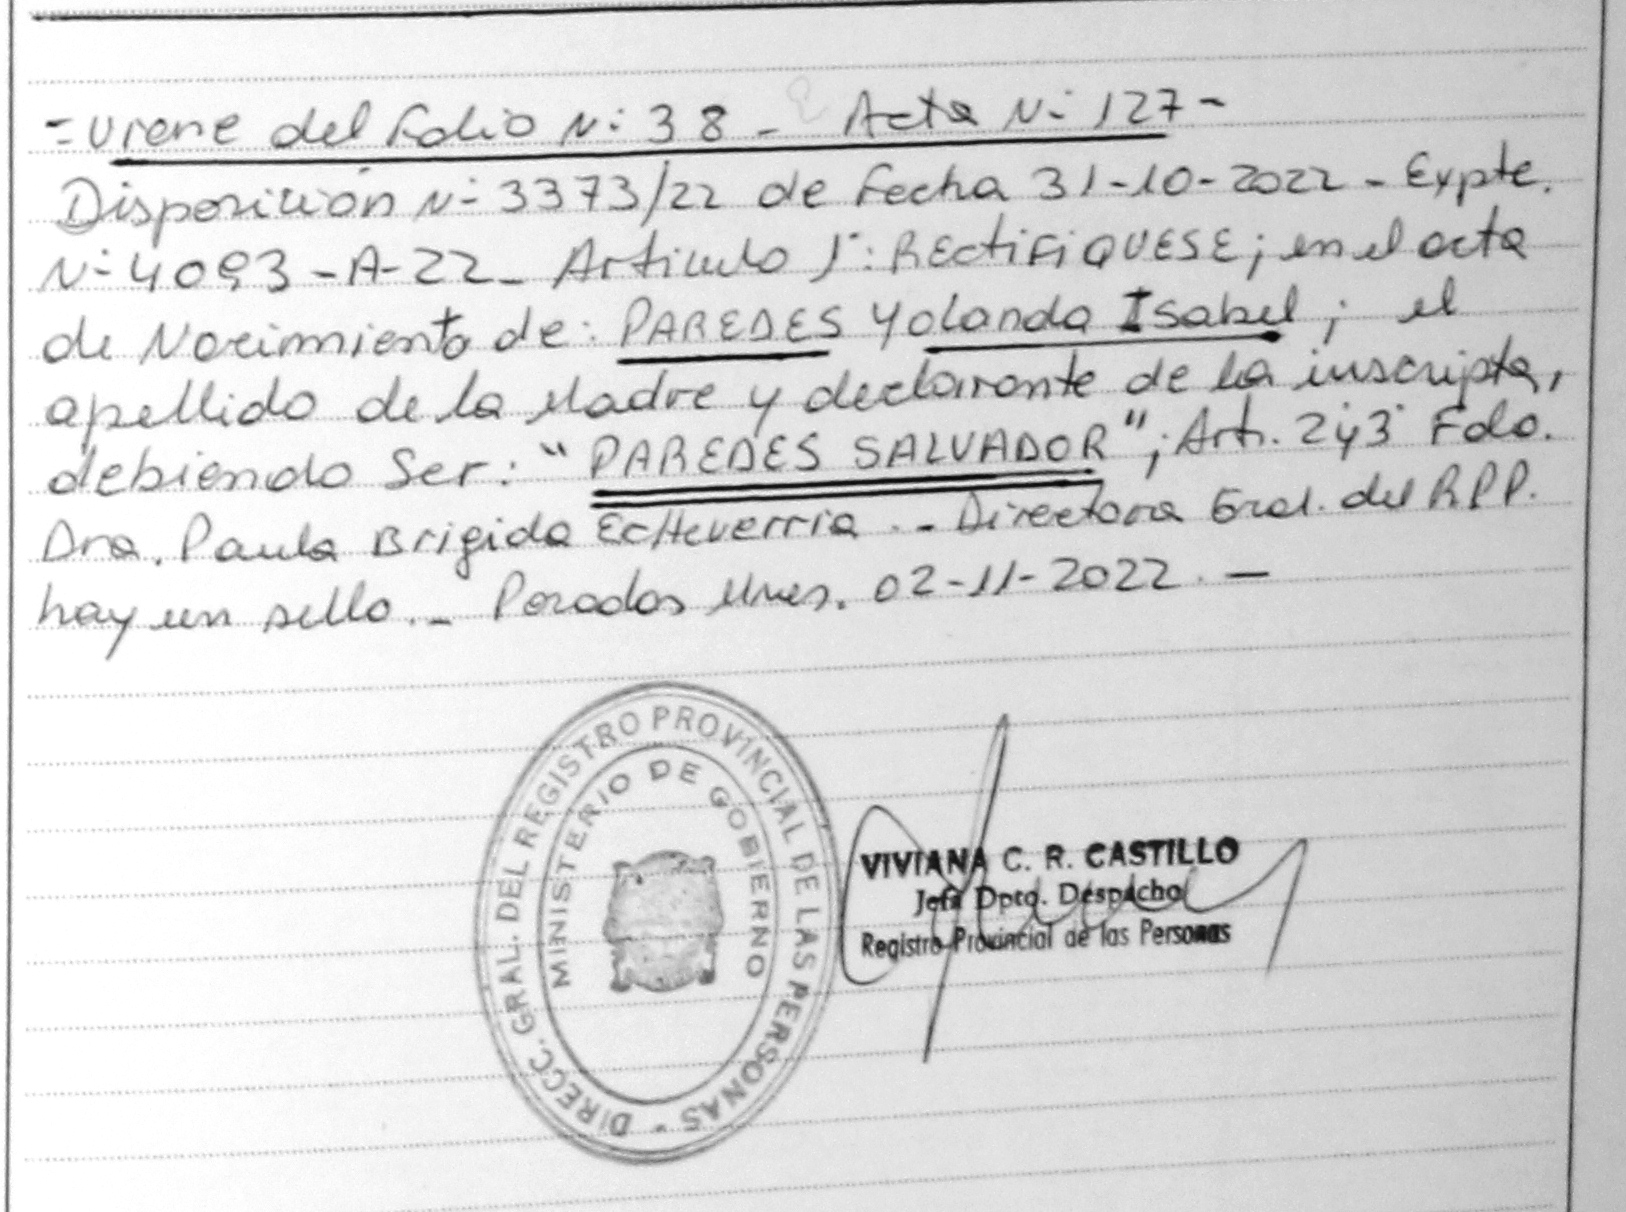 = Viene del Folio N: 38 - Acta N: 127 -
Disposición N: 3373/22 de Fecha 31-10-2022 - Expte.
N: 4093-A-22 - Articulo 1°: RECTIFIQUESE; en el acta
de Nacimiento de: PAREDES Yolanda Isabel; el
apellido de la Madre y declarante de la inscripta,
debiendo Ser: "PAREDES SALVADOR"; Art. 2 y 3° Fdo.
Dra. Paula Brigida Echeverria. - Directora Gral. del R.P.P.
hay un sello. - Posadas Mnes. 02-11-2022. -
DIRECC. GRAL. DEL REGISTRO PROVINCIAL DE LAS PERSONAS
MINISTERIO DE GOBIERNO
VIVIANA C. R. CASTILLO
Jefa Dpto. Despacho
Registro Provincial de las Personas